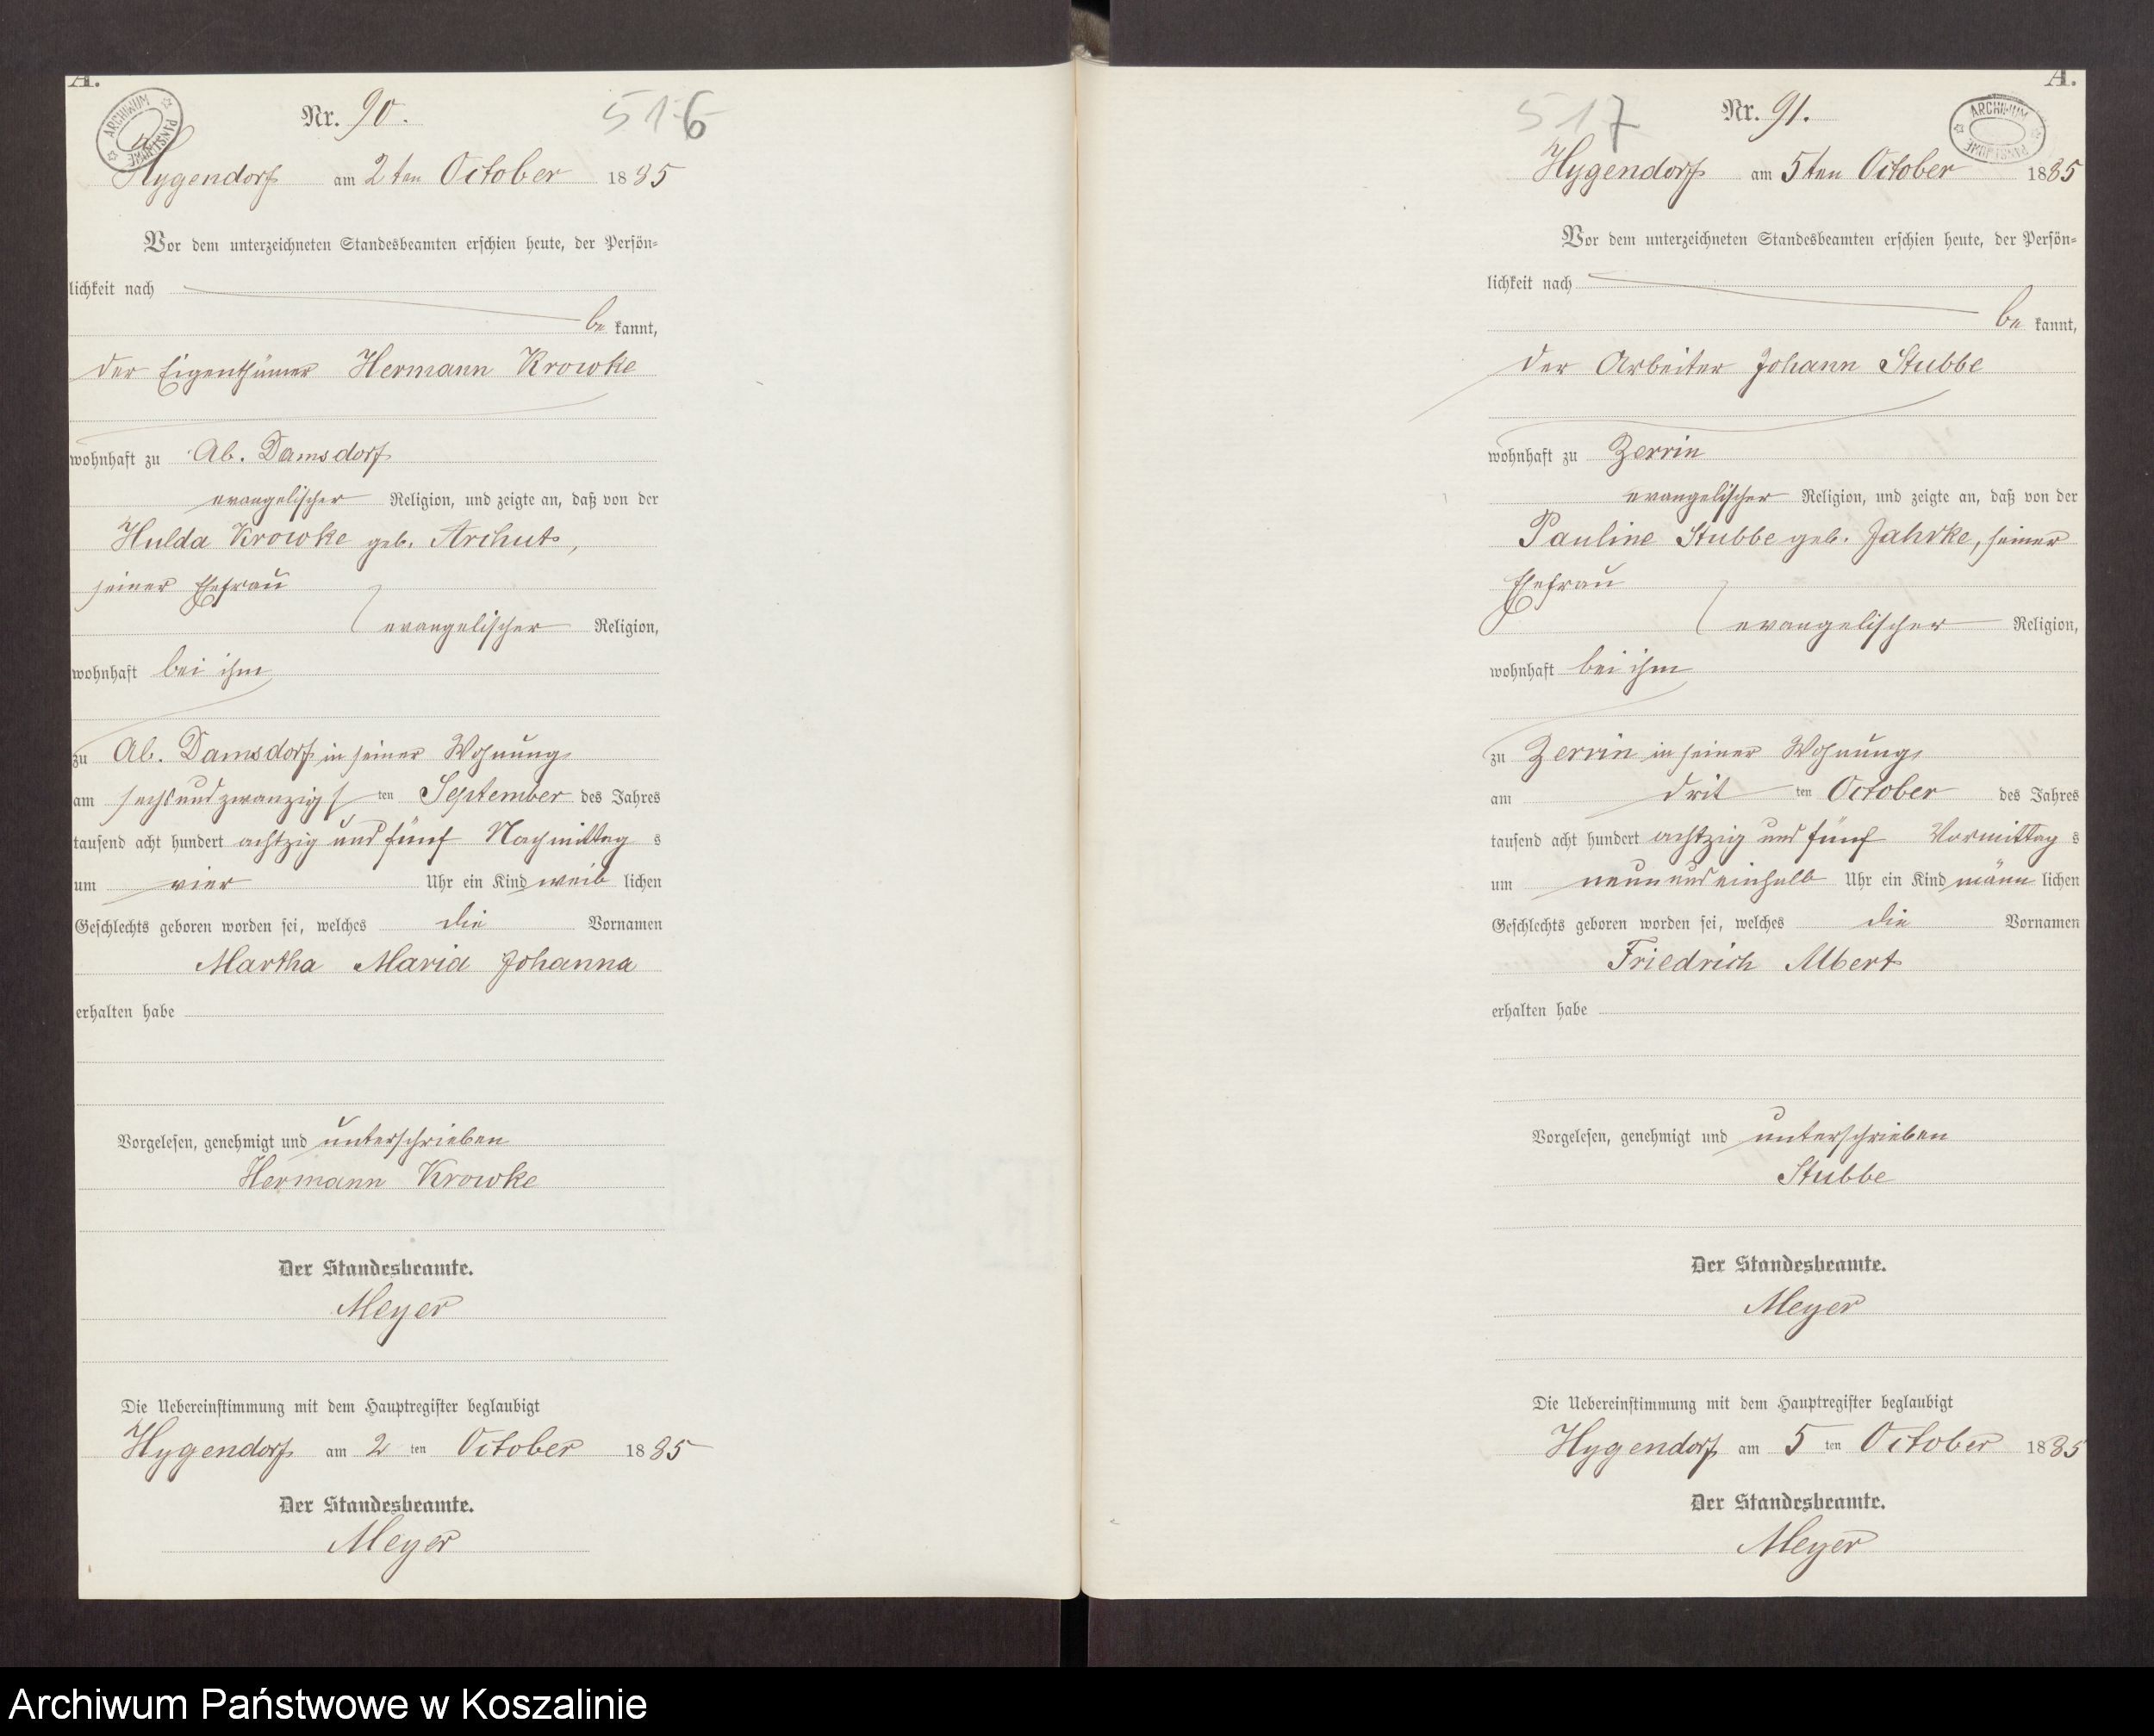 A.
ARCHIWUM PAŃSTWOWE
Nr. 90.
516
Hygendorf am 2ten October 1885
Vor dem unterzeichneten Standesbeamten erschien heute, der Persön-
lichkeit nach
be kannt,
der Eigenthümer Hermann Krowke
wohnhaft zu Ab. Damsdorf
evangelischer Religion, und zeigte an, daß von der
Hulda Krowke geb. Archut,
seiner Ehefrau
evangelischer Religion,
wohnhaft bei ihm
zu Ab. Damsdorf in seiner Wohnung
am sechsundzwanzigs ten September des Jahres
tausend acht hundert achtzig und fünf Nachmittag s
um vier Uhr ein Kind weib lichen
Geschlechts geboren worden sei, welches die Vornamen
Martha Maria Johanna
erhalten habe
Vorgelesen, genehmigt und unterschrieben
Hermann Krowke
Der Standesbeamte.
Meyer
Die Uebereinstimmung mit dem Hauptregister beglaubigt
Hygendorf am 2 ten October 1885
Der Standesbeamte.
Meyer
A.
517
Nr. 91.
ARCHIWUM PAŃSTWOWE
Hygendorf am 5ten October 1885
Vor dem unterzeichneten Standesbeamten erschien heute, der Persön-
lichkeit nach
be kannt,
der Arbeiter Johann Stubbe
wohnhaft zu Zerrin
evangelischer Religion, und zeigte an, daß von der
Pauline Stubbe geb. Jahrke, seiner
Ehefrau
evangelischer Religion,
wohnhaft bei ihm
zu Zerrin in seiner Wohnung
am drit ten October des Jahres
tausend acht hundert achtzig und fünf Vormittag s
um neunundeinhalb Uhr ein Kind männ lichen
Geschlechts geboren worden sei, welches die Vornamen
Friedrich Albert
erhalten habe
Vorgelesen, genehmigt und unterschrieben
Stubbe
Der Standesbeamte.
Meyer
Die Uebereinstimmung mit dem Hauptregister beglaubigt
Hygendorf am 5 ten October 1885
Der Standesbeamte.
Meyer
Archiwum Państwowe w Koszalinie